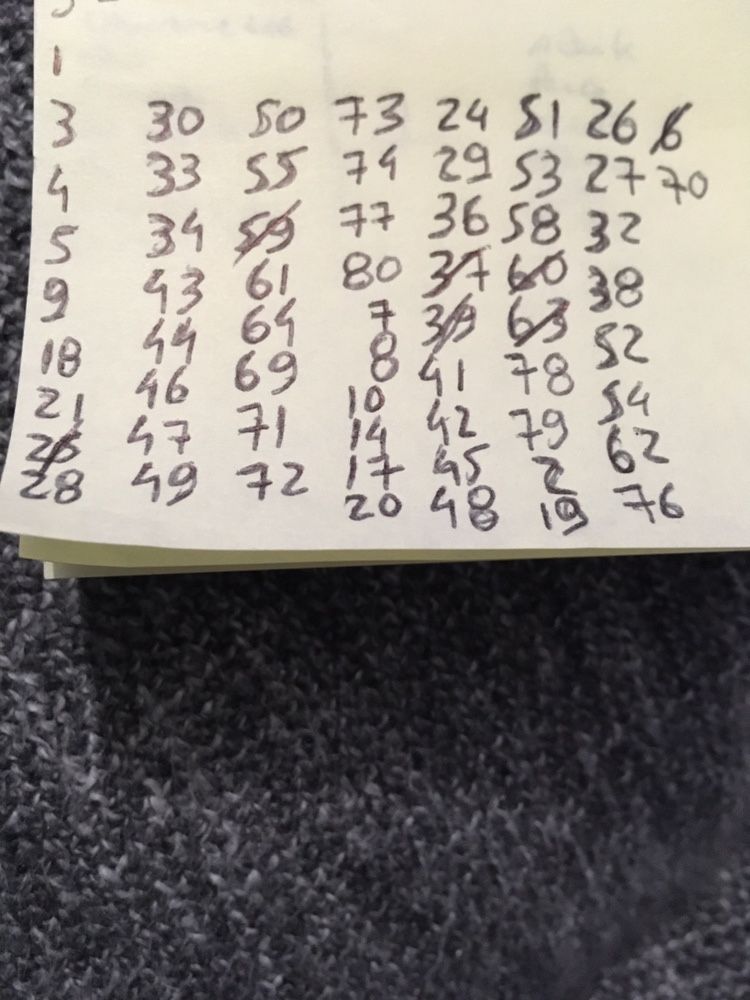 1
3 30 50 73 24 51 26 6
4 33 55 74 29 53 27 70
5 34 59 77 36 58 32
9 43 61 80 37 60 38
18 44 64 7 39 63 52
21 46 69 8 41 78 54
25 47 71 10 42 79 62
28 49 72 14 45 2 76
17 48 19
20